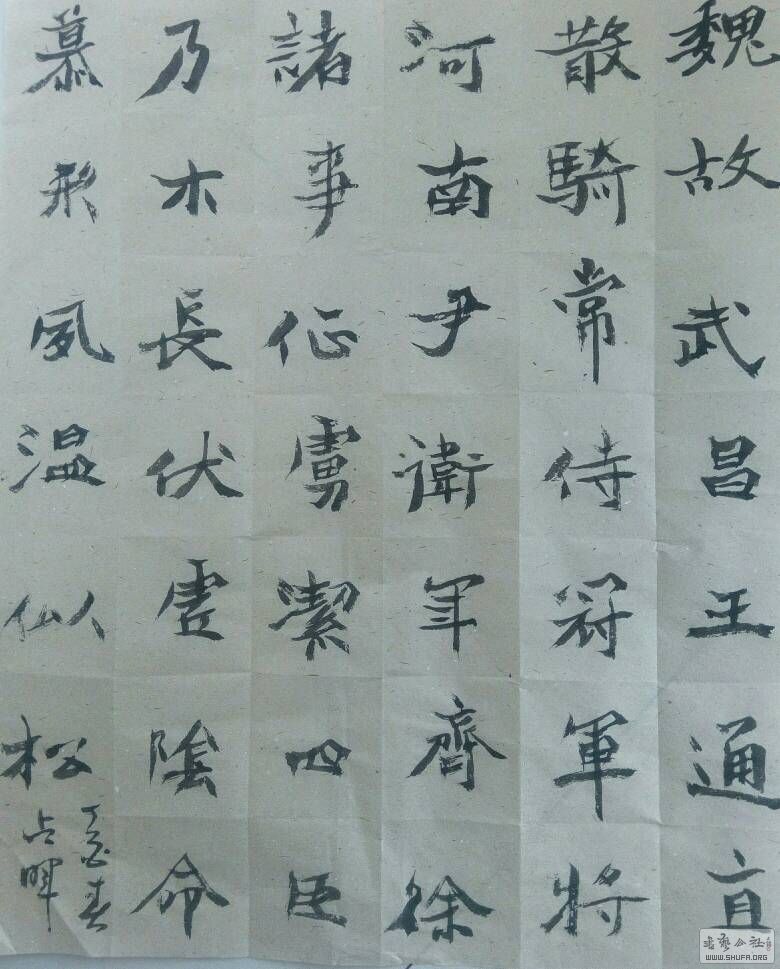 魏故武昌王通直
散騎常侍冠軍將
河南尹衛軍齊徐
諸事征虜潔四臣
乃木長伏虛陰命
慕形夙温似松
丁酉春
占暉
書藝公社
WWW.SHUFA.ORG